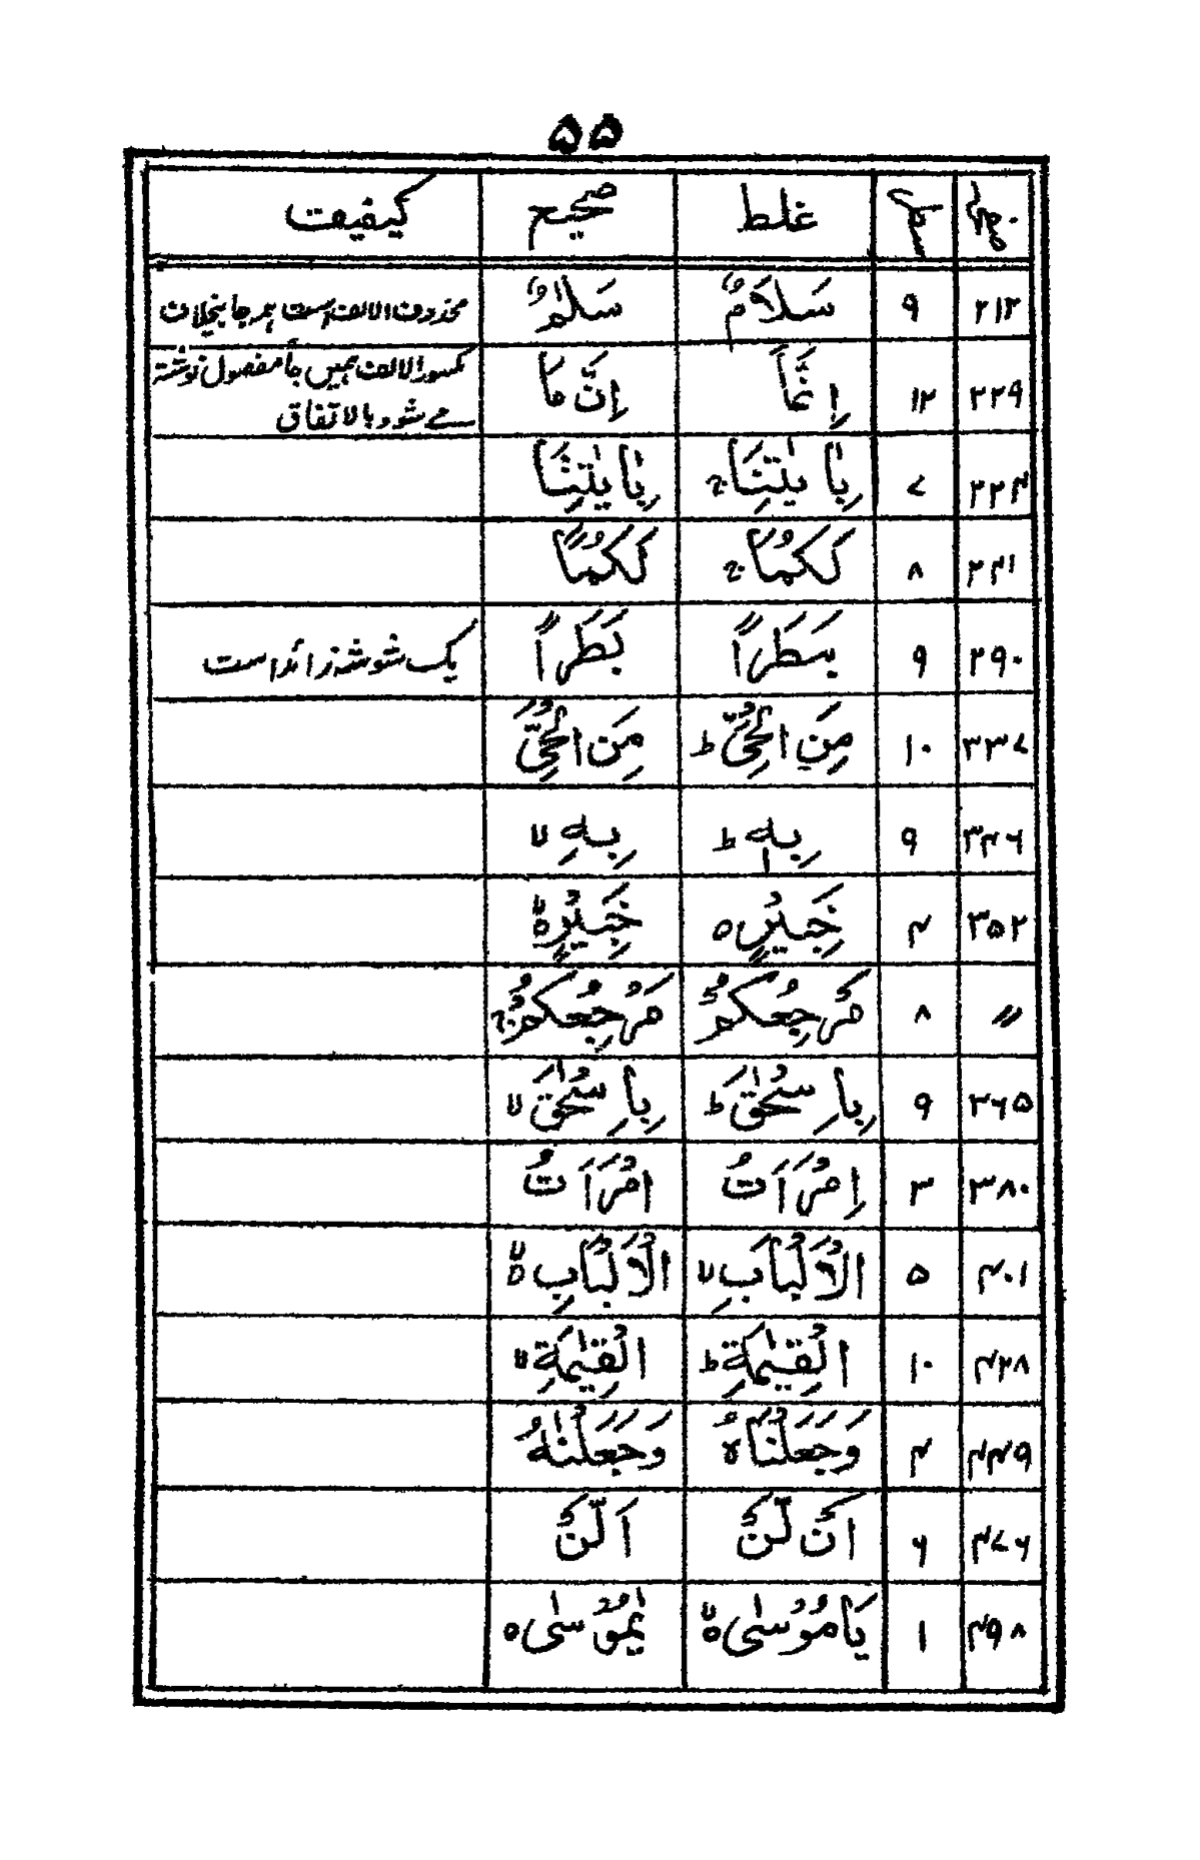 ۵۵
صفحہ سطر غلط صحیح کیفیت
۲۱۲ ۹ سَلَامٌ سَلٰمٌ محذوف الالف است ہر جا بخلاف
۲۲۹ ۱۲ اِنَّمَا اِنَّ مَا مکسور الالف ہمیں جا مفصول نوشتہ
مے شود بالاتفاق
۲۲۴ ۷ بِاٰيٰتِنَا ج بِاٰيٰتِنَا
۲۴۱ ۸ لَكُمَا ج لَكُمَا
۲۹۰ ۹ بَطَرًا بَطَرًا یک شوشہ زائد است
۳۳۷ ۱۰ مِنَ الْحَيِّ ط مِنَ الْحَيِّ
۳۴۶ ۹ بِهٖ ط بِهٖ لا
۳۵۲ ۴ خَبِيْرٍ ه خَبِيْرٍ ه لا
〃 ۸ مَرْجِعُكُمْ مَرْجِعُكُمْ ج
۳۶۵ ۹ بِاِسْحٰقَ ط بِاِسْحٰقَ لا
۳۸۰ ۳ اِمْرَاَتُ امْرَاَتُ
۴۰۱ ۵ الْاَلْبَابِ لا الْاَلْبَابِ ه لا
۴۲۸ ۱۰ الْقِيٰمَةِ ط الْقِيٰمَةِ لا
۴۴۹ ۴ وَجَعَلْنَاهُ وَجَعَلْنٰهُ
۴۷۶ ۶ اَنْ لَّنْ اَلَّنْ
۴۹۸ ۱ يَامُوْسٰى ه لا يٰمُوْسٰى ه